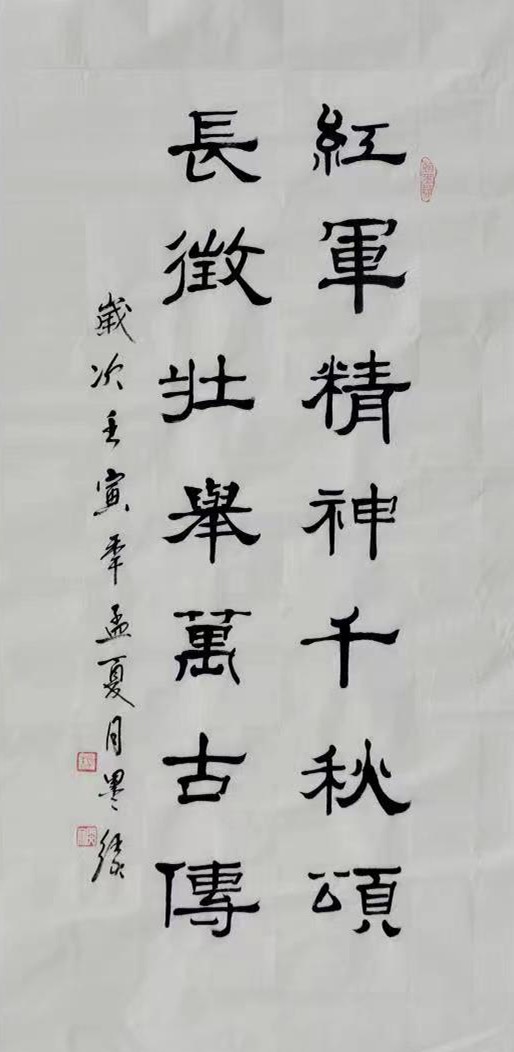 紅軍精神千秋頌
長徵壯舉萬古傳
歲次壬寅年孟夏月墨缘